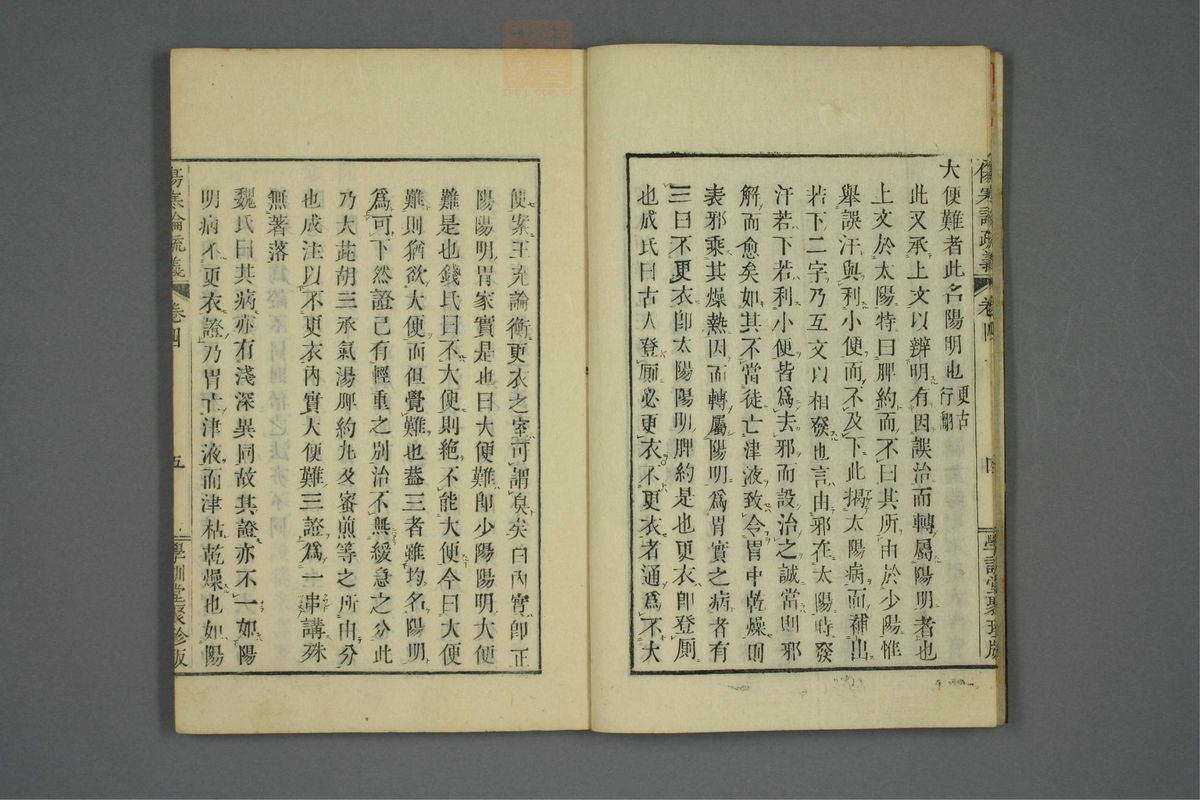 傷寒論疏義 卷四 四 學訓堂聚珍版
大便難者此名陽明也 更古行翻
此又承上文以辨明有因誤治而轉屬陽明者也
上文於太陽特曰脾約而不曰其所由於少陽惟
舉誤汗與利小便而不及下此揭太陽病而補出
若下二字乃互文以相發也言由邪在太陽時發
汗若下若利小便皆爲去邪而設治之誠當則邪
解而愈矣如其不當徒亡津液致令胃中乾燥而
表邪乘其燥熱因而轉屬陽明爲胃實之病者有
三曰不更衣卽太陽陽明脾約是也更衣卽登厠
也成氏曰古人登厠必更衣不更衣者通爲不大
便案王充論衡更衣之室可謂臭矣曰內實卽正
陽陽明胃家實是也曰大便難卽少陽陽明大便
難是也錢氏曰不大便則絶不能大便今曰大便
難則猶欲大便而但覺難也蓋三者雖均名陽明
爲可下然證已有輕重之別治不無緩急之分此
乃大茈胡三承氣湯脾約丸及蜜煎等之所由分
也成注以不更衣內實大便難三證爲一串講殊
無著落
魏氏曰其病亦有淺深異同故其證亦不一如陽
明病不更衣證乃胃亡津液而津枯乾燥也如陽
傷寒論疏義 卷四 五 學訓堂聚珍版